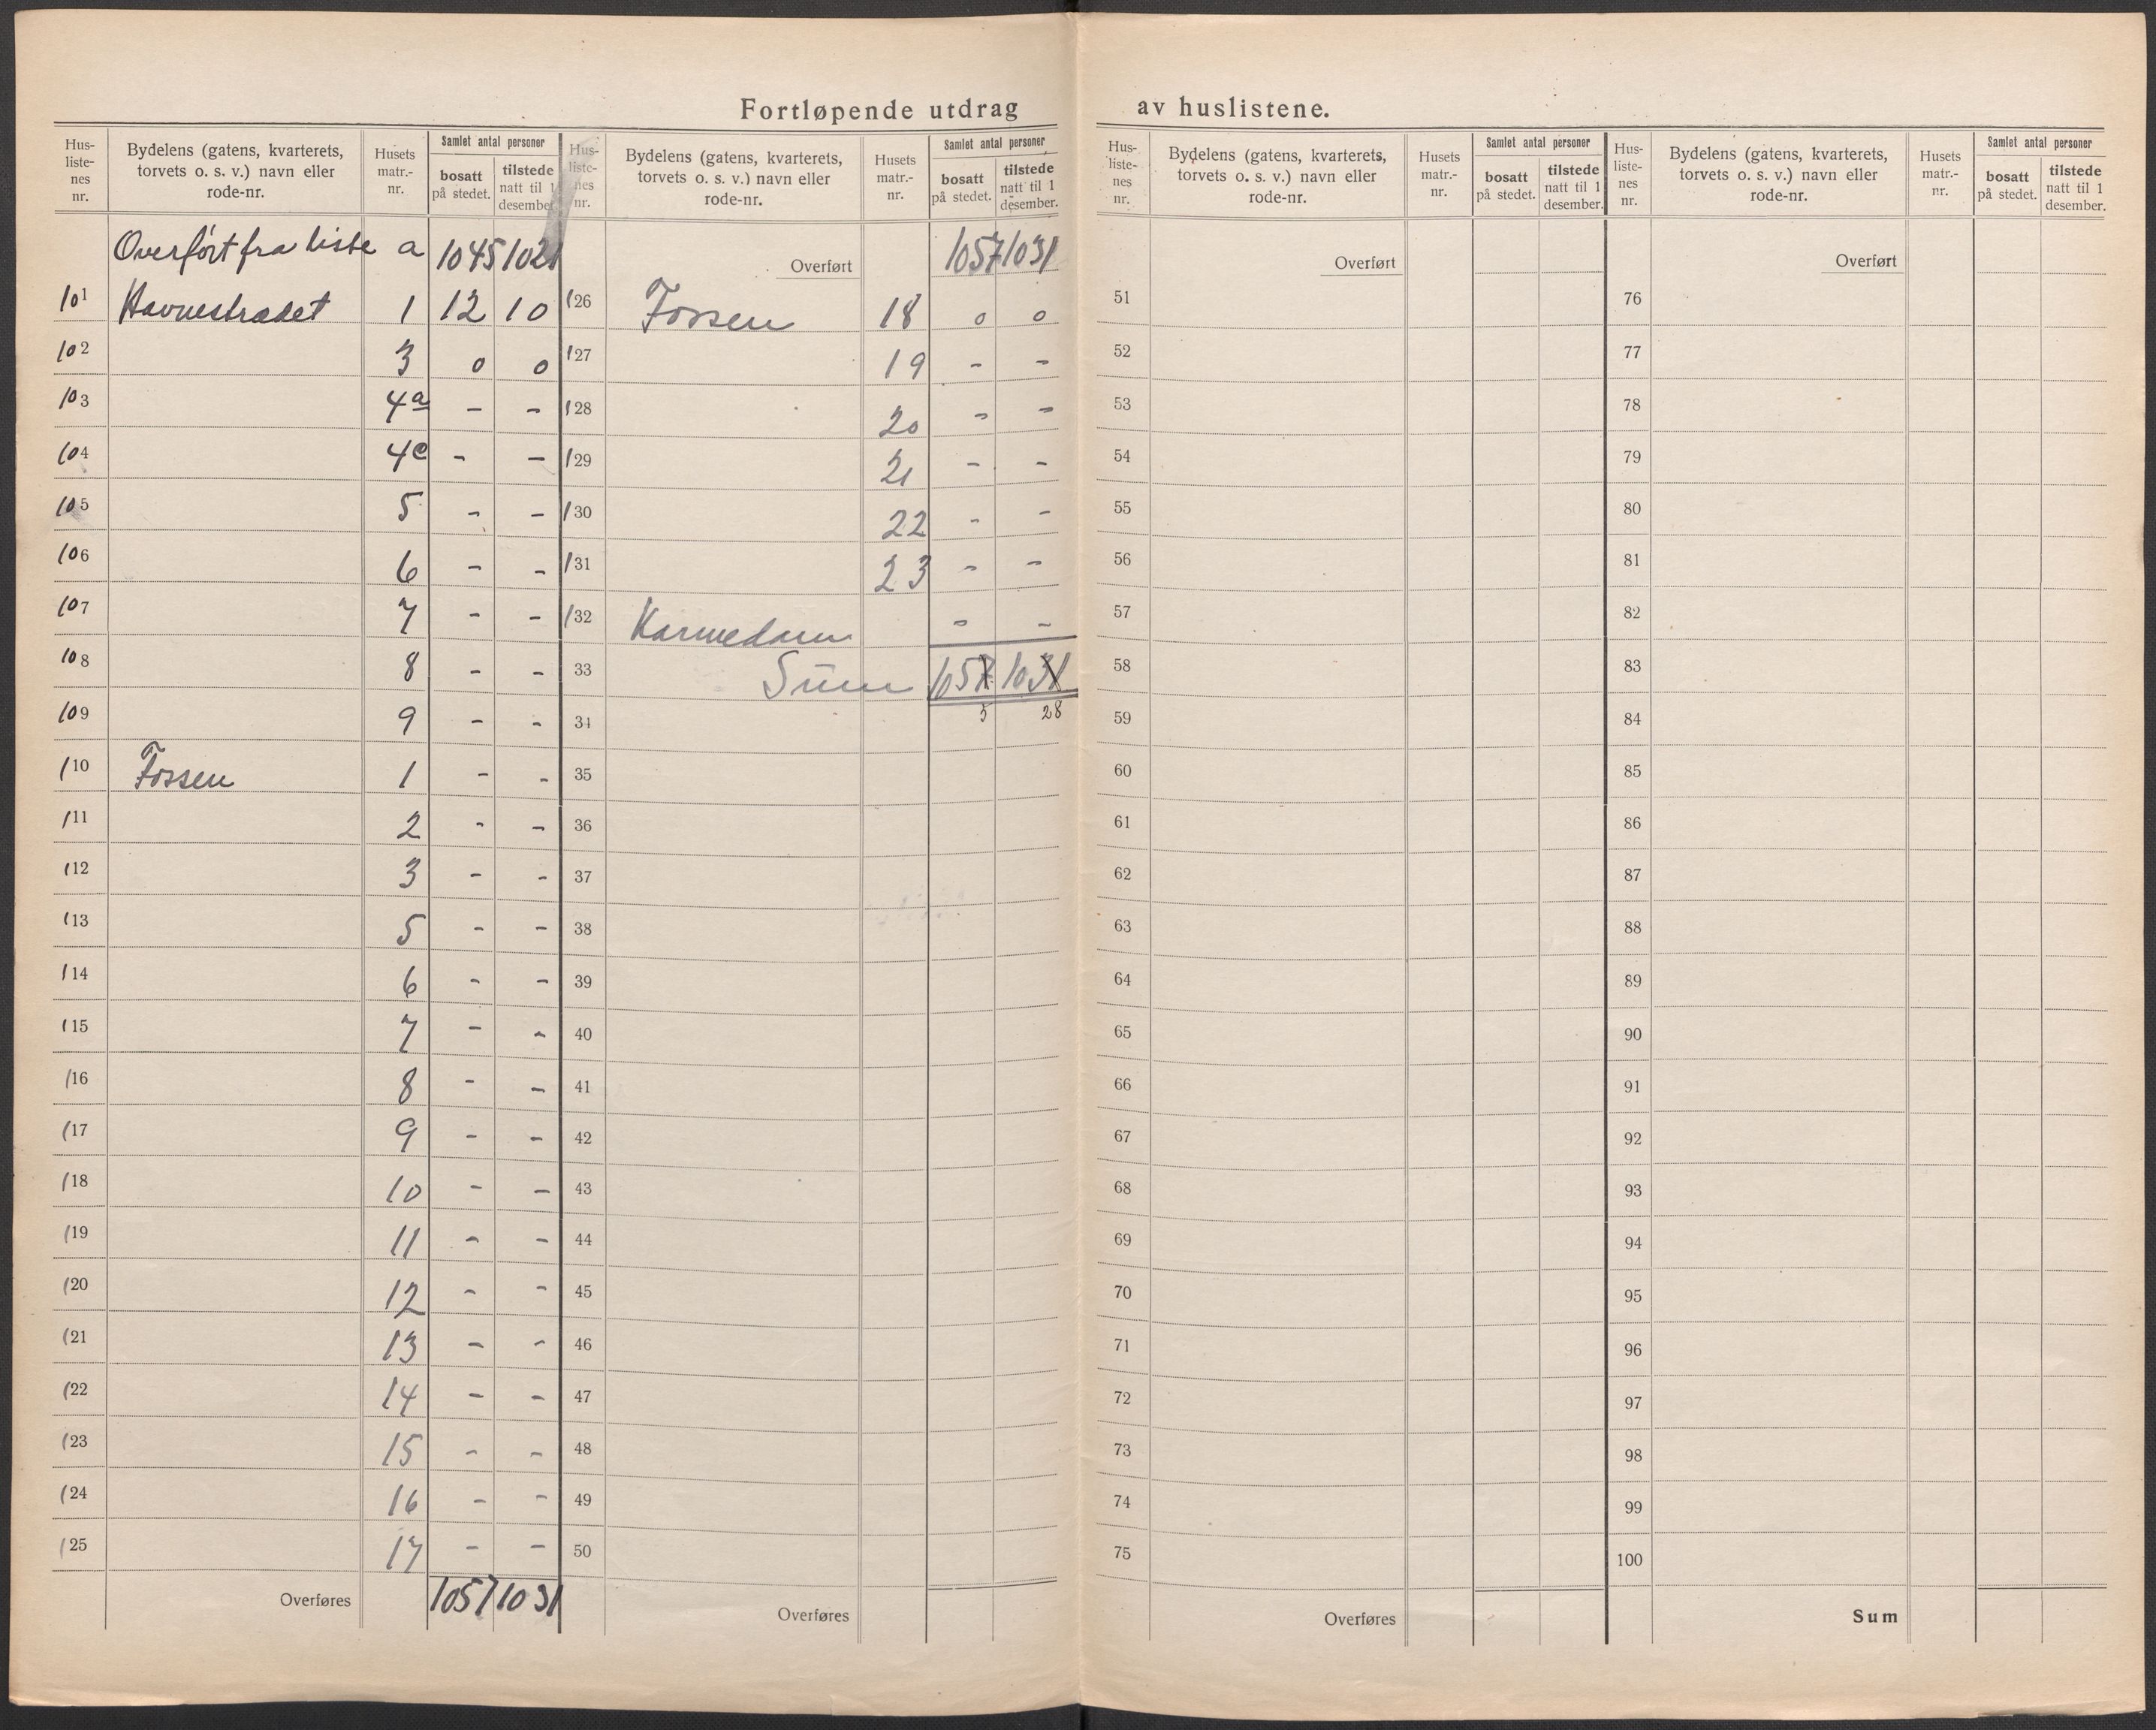 Fortløpende utdrag av huslistene.
Hus-liste-nes nr. | Bydelens (gatens, kvarterets, torvets o. s. v.) navn eller rode-nr. | Husets matr.-nr. | Samlet antal personer | bosatt på stedet. | tilstede natt til 1 desember.
Overført fra liste a 1045 1021
101 Havnestrædet 1 12 10
102 3 0 0
103 4a - -
104 4c - -
105 5 - -
106 6 - -
107 7 - -
108 8 - -
109 9 - -
110 Fossen 1 - -
111 2 - -
112 3 - -
113 5 - -
114 6 - -
115 7 - -
116 8 - -
117 9 - -
118 10 - -
119 11 - -
120 12 - -
121 13 - -
122 14 - -
123 15 - -
124 16 - -
125 17 - -
Overføres 1057 1031
Hus-liste-nes nr. | Bydelens (gatens, kvarterets, torvets o. s. v.) navn eller rode-nr. | Husets matr.-nr. | Samlet antal personer | bosatt på stedet. | tilstede natt til 1 desember.
Overført 1057 1031
126 Fossen 18 0 0
127 19 - -
128 20 - -
129 21 - -
130 22 - -
131 23 - -
132 - -
33 Sum 1057 1031
34 5 28
35
36
37
38
39
40
41
42
43
44
45
46
47
48
49
50
Overføres
Hus-liste-nes nr. | Bydelens (gatens, kvarterets, torvets o. s. v.) navn eller rode-nr. | Husets matr.-nr. | Samlet antal personer | bosatt på stedet. | tilstede natt til 1 desember.
Overført
51
52
53
54
55
56
57
58
59
60
61
62
63
64
65
66
67
68
69
70
71
72
73
74
75
Overføres
Hus-liste-nes nr. | Bydelens (gatens, kvarterets, torvets o. s. v.) navn eller rode-nr. | Husets matr.-nr. | Samlet antal personer | bosatt på stedet. | tilstede natt til 1 desember.
Overført
76
77
78
79
80
81
82
83
84
85
86
87
88
89
90
91
92
93
94
95
96
97
98
99
100
Sum